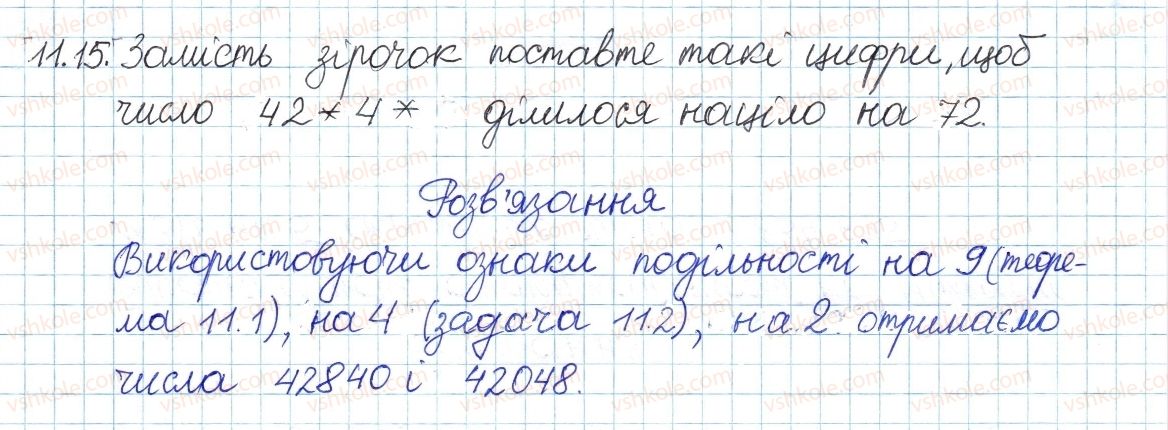 11.15. Замість зірочок поставте такі цифри, щоб
число 42*4* ділилося націло на 72.
Розв'язання
Використовуючи ознаки подільності на 9 (теоре-
ма 11.1), на 4 (задача 11.2), на 2 отримаємо
числа 42840 і 42048.